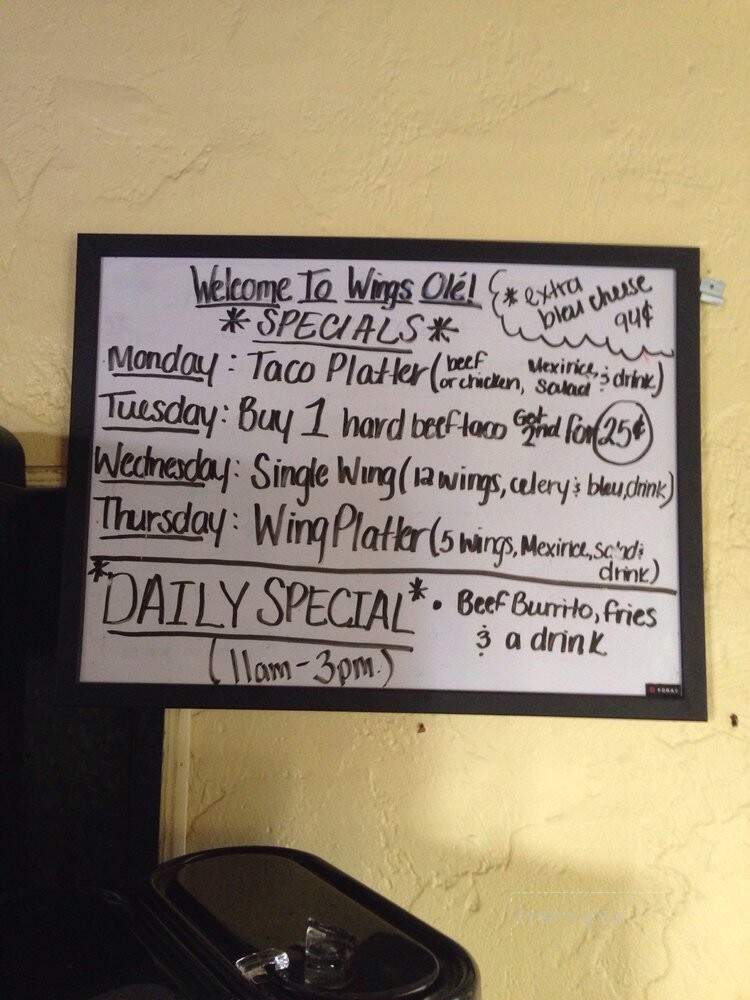 Welcome To Wings Olé!
* extra
bleu cheese
94¢
*SPECIALS*
Monday: Taco Platter (beef or chicken, Mexirice, salad & drink)
Tuesday: Buy 1 hard beef taco Get 2nd for 25¢
Wednesday: Single Wing (12 wings, celery & bleu, drink)
Thursday: Wing Platter (5 wings, Mexirice, salad & drink)
*DAILY SPECIAL* • Beef Burrito, fries
& a drink
(11am-3pm.)